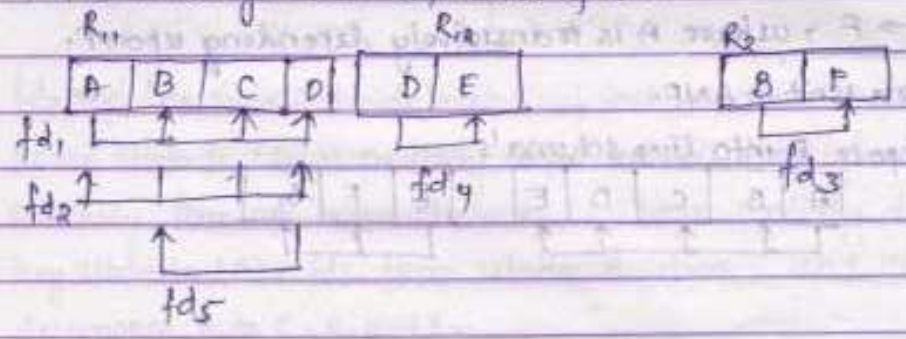 R₁₁ R₁₂ R₂
A B C D D E B F
fd₁
fd₂ fd₄ fd₃
fd₅